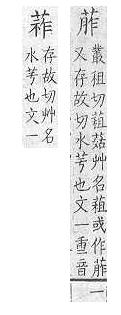 葄
叢租切蒩菇艸名蒩或作葄
又存故切水芧也文一重音
一
存故切艸名
水芧也文一